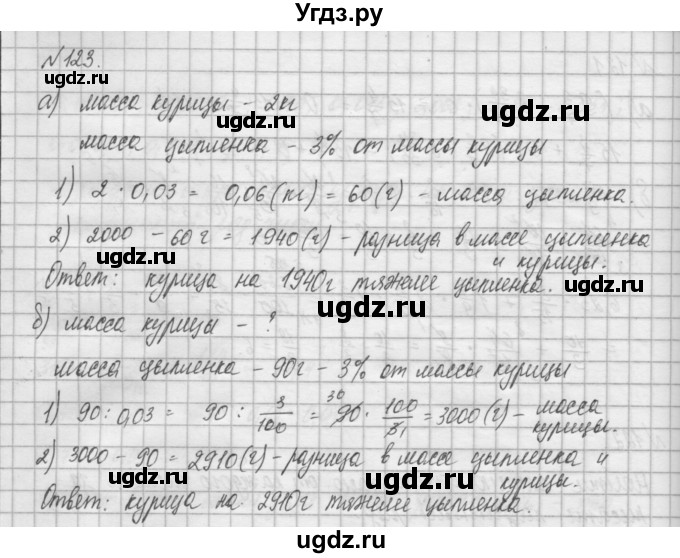 Угдз.ру
№123.
ugdz.ru
а) масса курицы - 2кг
ugdz.ru
масса цыпленка - 3% от массы курицы
ugdz.ru
1) 2 · 0,03 = 0,06(кг) = 60(г) - масса цыпленка.
2) 2000 - 60г = 1940(г) - разница в массе цыпленка
ugdz.ru
и курицы.
Ответ: курица на 1940г тяжелее цыпленка.
ugdz.ru
б) масса курицы - ?
ugdz.ru
масса цыпленка - 90г - 3% от массы курицы
ugdz.ru
1) 90 : 0,03 = 90 : 3/100 = 90 30 · 100/3 1 = 3000(г) - масса
курицы.
2) 3000 - 90 = 2910(г) - разница в массе цыпленка и
ugdz.ru
курицы.
Ответ: курица на 2910г тяжелее цыпленка.
ugdz.ru
ugdz.ru